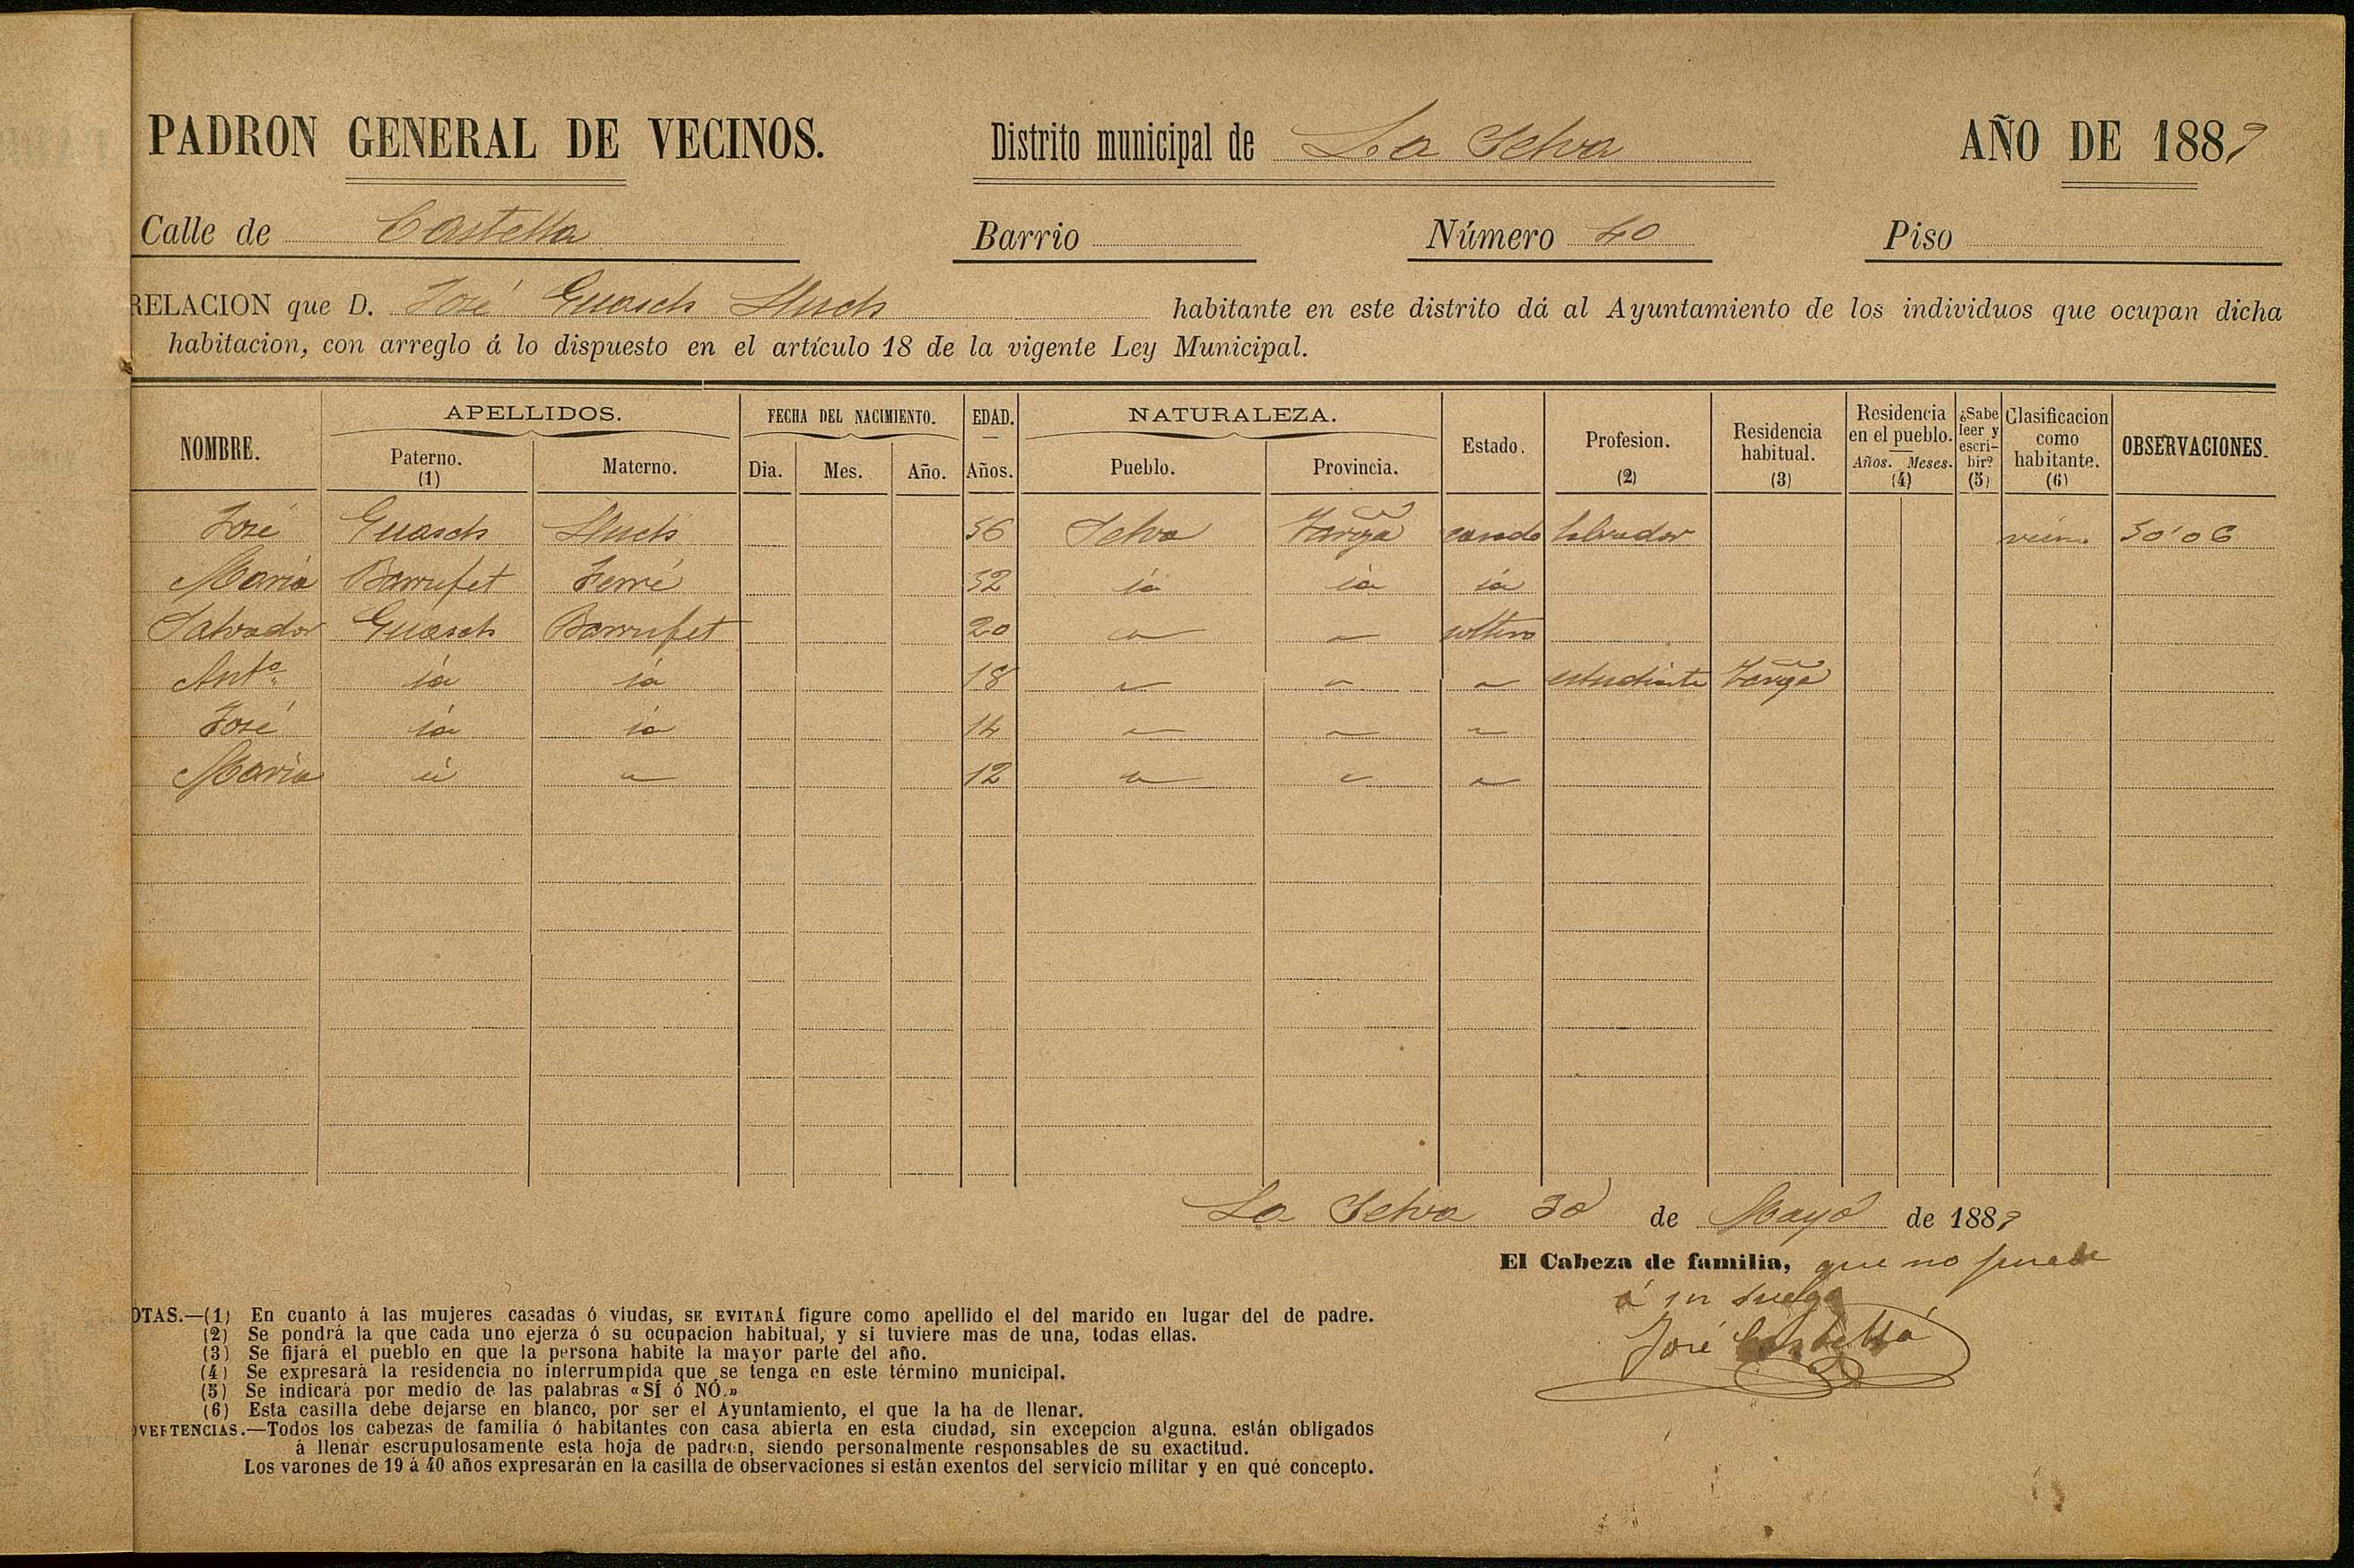 PADRON GENERAL DE VECINOS. Distrito municipal de La Selva AÑO DE 1889
Calle de Castella Barrio Número 40 Piso
RELACION que D. José Guasch Lluch habitante en este distrito dá al Ayuntamiento de los individuos que ocupan dicha
habitacion, con arreglo á lo dispuesto en el artículo 18 de la vigente Ley Municipal.
NOMBRE. APELLIDOS. Paterno. (1) Materno. FECHA DEL NACIMIENTO. Dia. Mes. Año. EDAD. — Años. NATURALEZA. Pueblo. Provincia. Estado. Profesion. (2) Residencia habitual. (3) Residencia en el pueblo. Años. Meses. (4) ¿Sabe leer y escribir? (5) Clasificacion como habitante. (6) OBSERVACIONES.
José Guasch Lluch 56 Selva Tarrga casado labrador 50'06
Maria Barrufet Ferré 52 id id id
Salvador Guasch Barrufet 20 " " soltero
Antº id id 18 " " " estudiante Tarrga
José id id 14 " " "
Maria id " 12 " " "
La Selva 30 de Mayo de 1889
El Cabeza de familia, que no puede
á su ruego
José Castelló
OTAS.—(1) En cuanto á las mujeres casadas ó viudas, SE EVITARÁ figure como apellido el del marido en lugar del de padre.
(2) Se pondrá la que cada uno ejerza ó su ocupacion habitual, y si tuviere mas de una, todas ellas.
(3) Se fijará el pueblo en que la persona habite la mayor parte del año.
(4) Se expresará la residencia no interrumpida que se tenga en este término municipal.
(5) Se indicará por medio de las palabras «SÍ ó NÓ.»
(6) Esta casilla debe dejarse en blanco, por ser el Ayuntamiento, el que la ha de llenar.
DVERTENCIAS.—Todos los cabezas de familia ó habitantes con casa abierta en esta ciudad, sin excepcion alguna, están obligados
á llenar escrupulosamente esta hoja de padron, siendo personalmente responsables de su exactitud.
Los varones de 19 á 40 años expresarán en la casilla de observaciones si están exentos del servicio militar y en qué concepto.